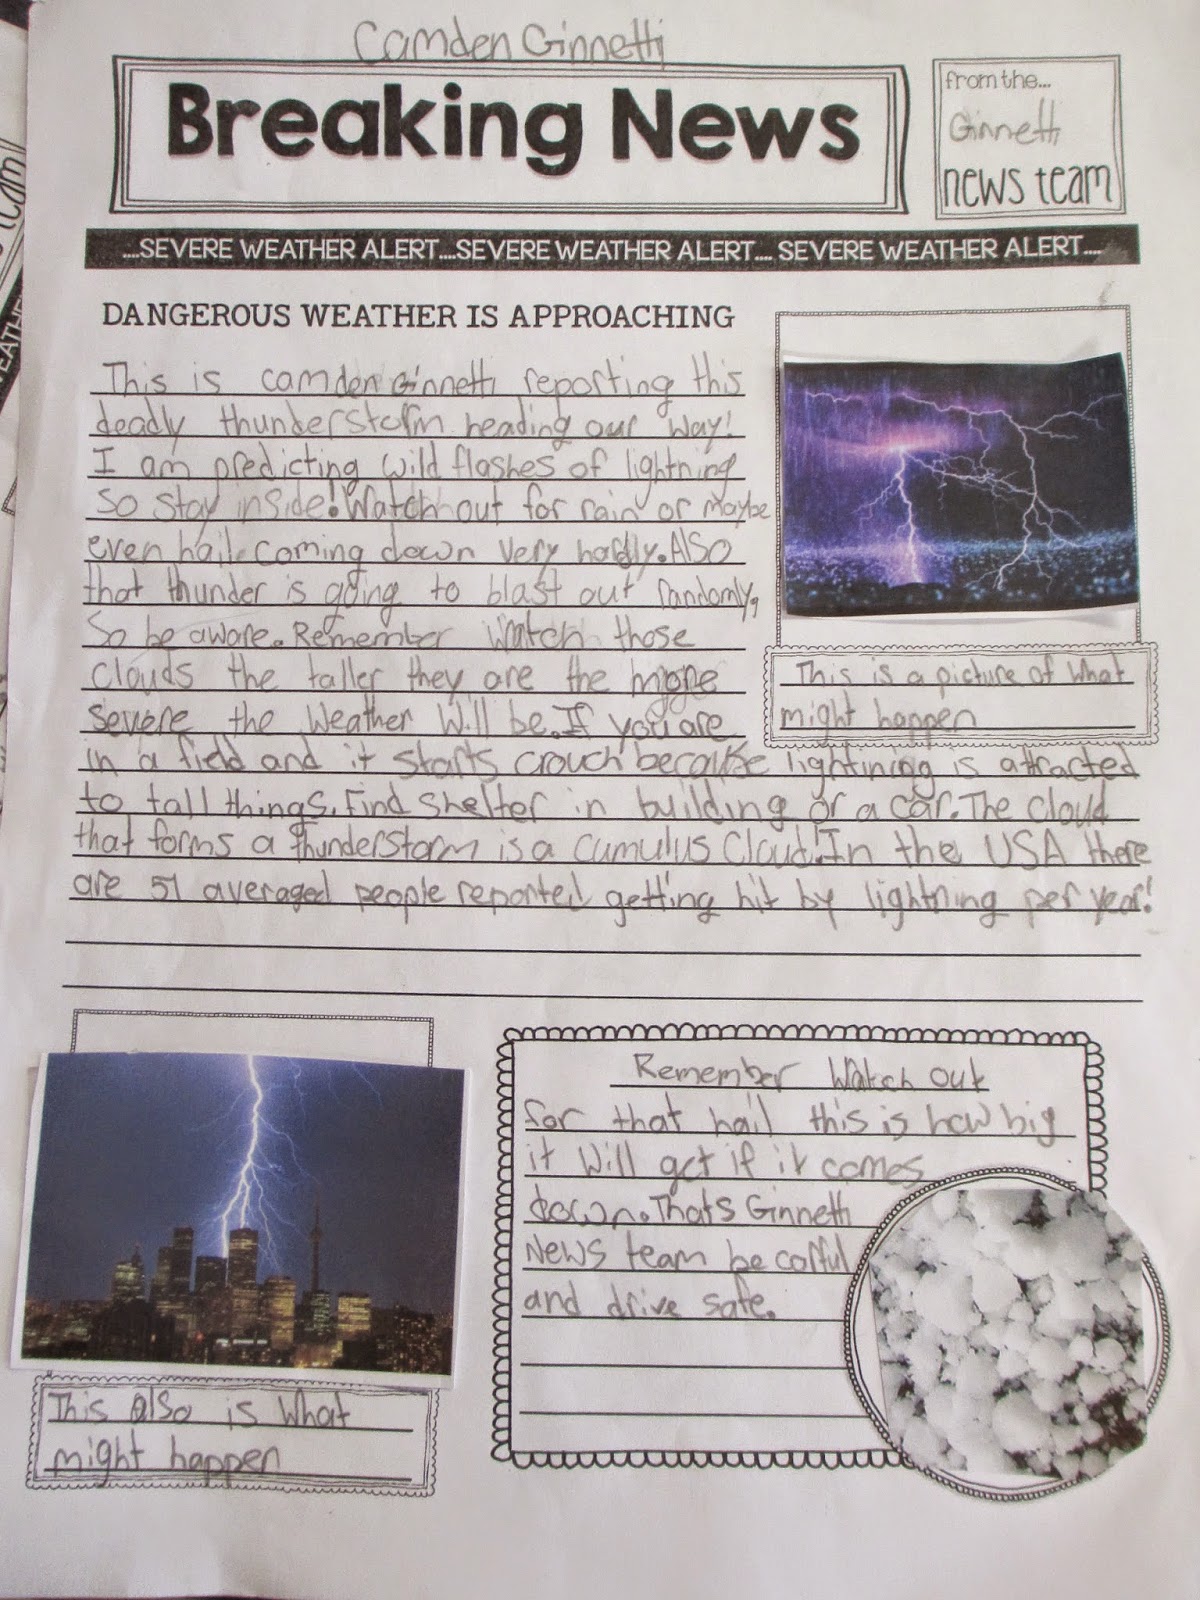 Camden Ginnetti
Breaking News
from the...
Ginnetti
news team
....SEVERE WEATHER ALERT....SEVERE WEATHER ALERT.... SEVERE WEATHER ALERT....
DANGEROUS WEATHER IS APPROACHING
This is camden Ginnetti reporting this
deadly thunderstorm heading our way!
I am predicting wild flashes of lightning
so stay inside! Watch out for rain or maybe
even hail coming down very hardly. Also
that thunder is going to blast out randomly,
So be aware. Remember watch those
clouds the taller they are the more
severe the weather will be. If you are
in a field and it starts crouch because lightining is attracted
to tall things. Find shelter in building or a car. The cloud
that forms a thunderstorm is a cumulus cloud! In the USA there
are 51 averaged people reported getting hit by lightning per year!
This is a picture of what
might happen
This also is what
might happen
Remember watch out
for that hail this is how big
it will get if it comes
down. Thats Ginnetti
News team be carful
and drive safe.